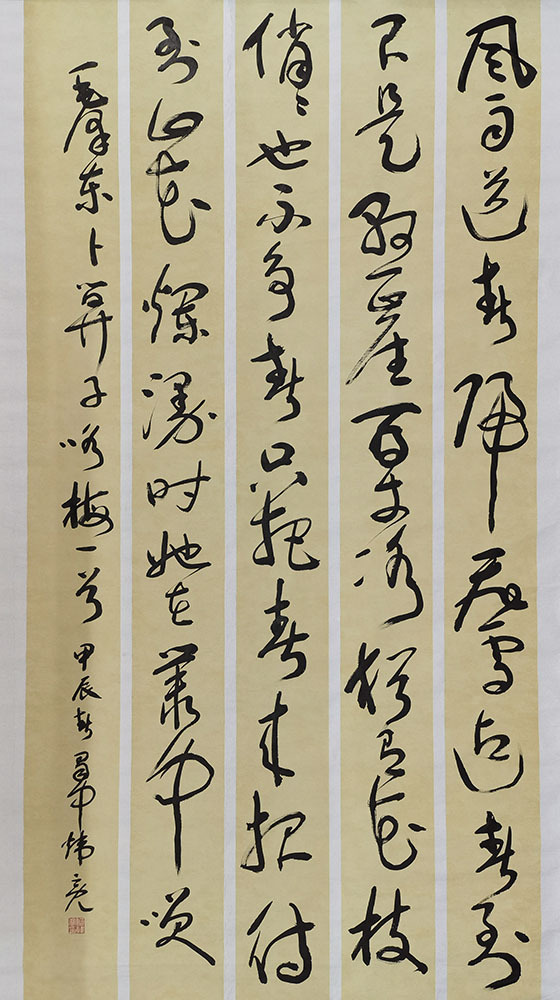 风雨送春归飞雪迎春到
已是悬崖百丈冰犹有花枝
俏〻也不争春只把春来报待
到山花爛漫时她在叢中笑
毛泽东卜算子咏梅一首 甲辰春 蜀中炜亮